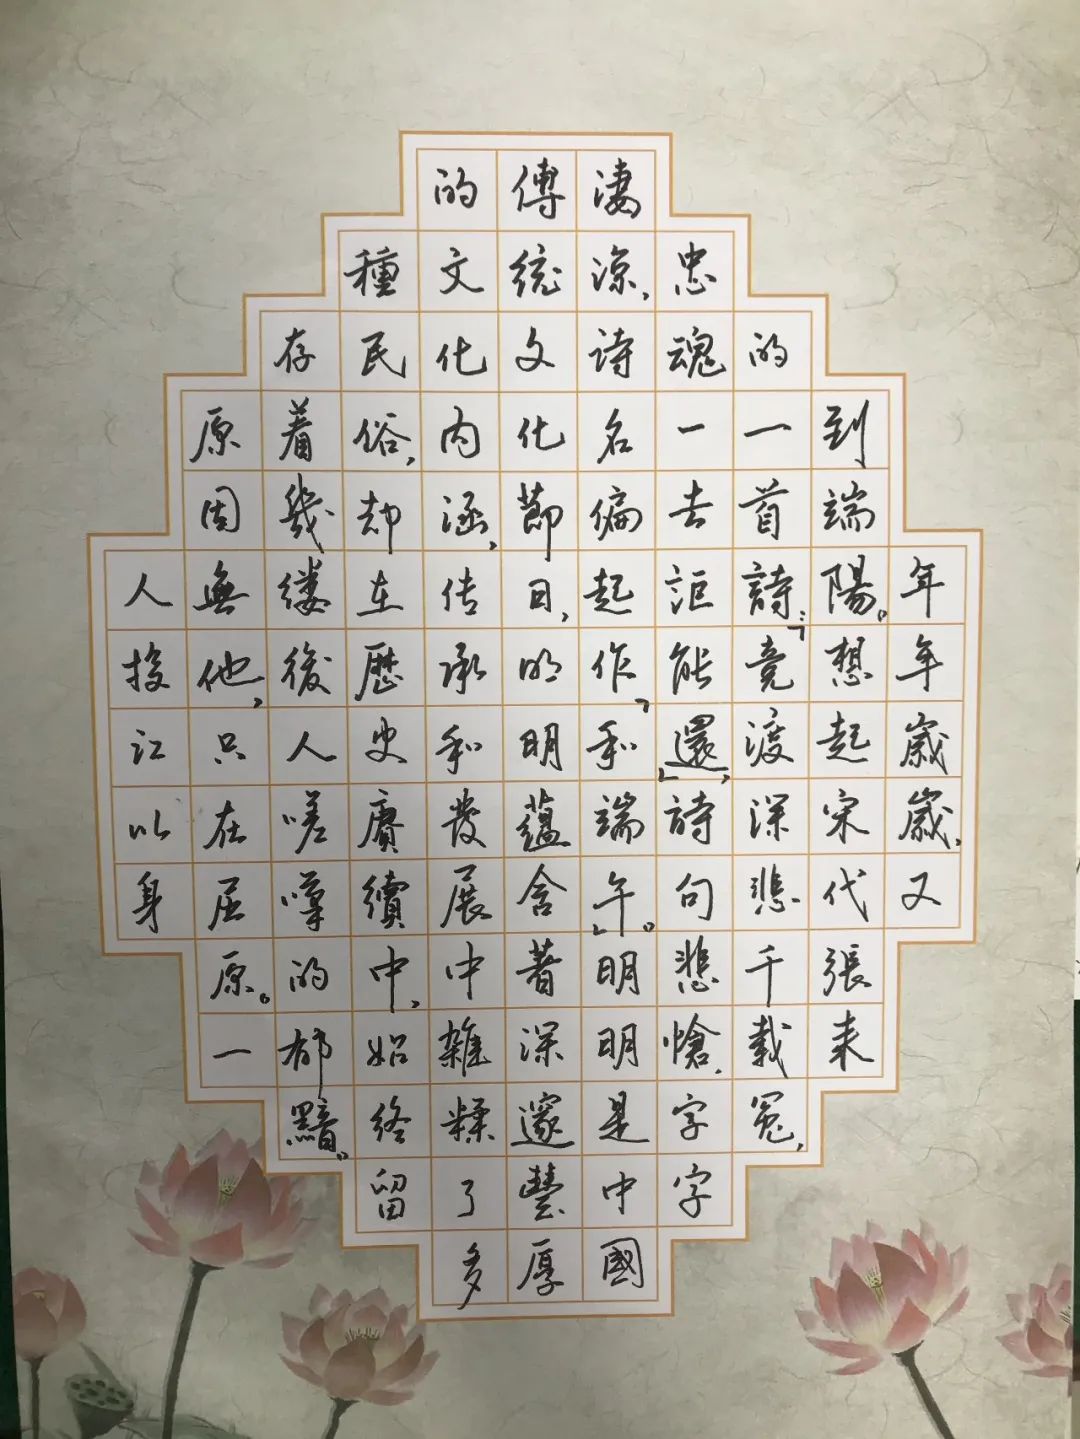 年年歲歲,又
到端陽。想起宋代張耒
的一首詩:「竞渡深悲千載冤,
忠魂一去詎能還」,詩句悲愴,字字
淒涼,詩名偏作「和端午」。明明是中國
傳統文化節日,明明蘊含著深邃豐厚
的文化内涵,传承和發展中雜糅了多
種民俗,却在歷史賡續中,始終留
存着幾缕後人嗟嘆的郁黯。
原因無他,只在屈原。一
人投江以身